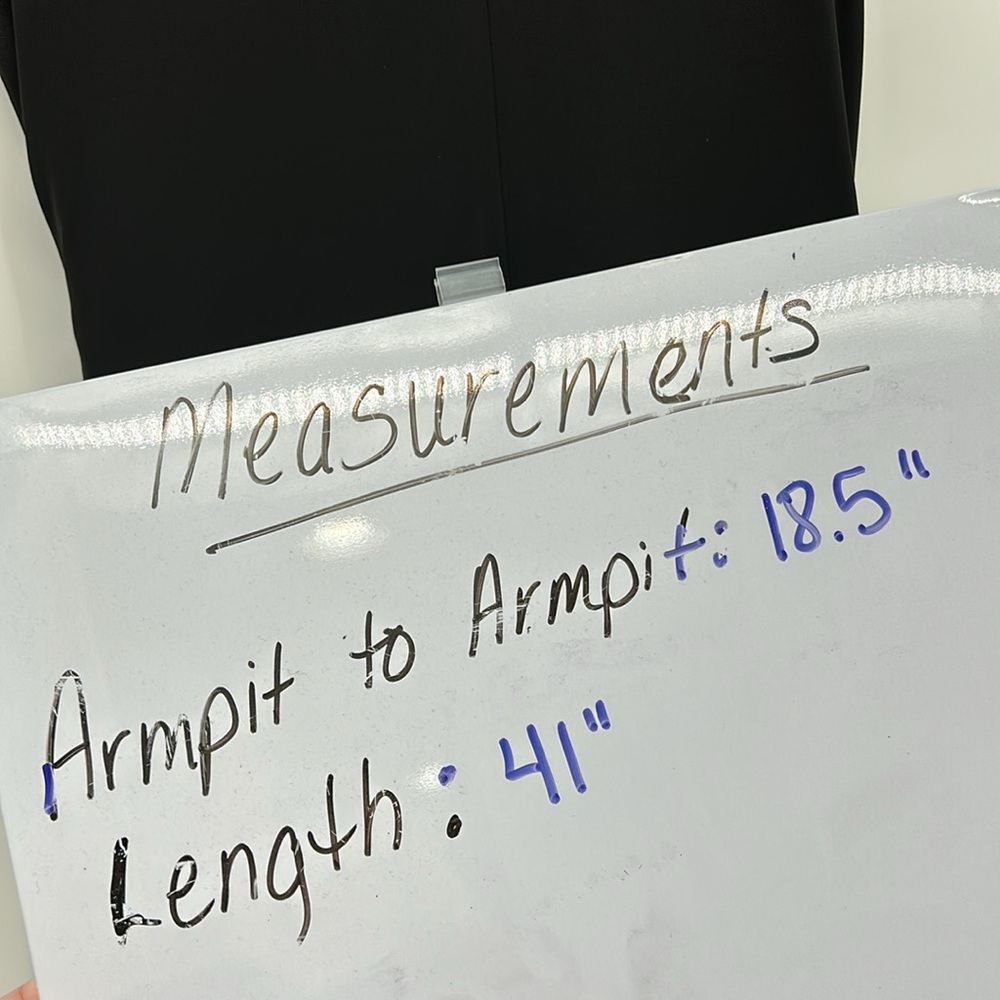 Measurements
Armpit to Armpit: 18.5"
Length: 41"